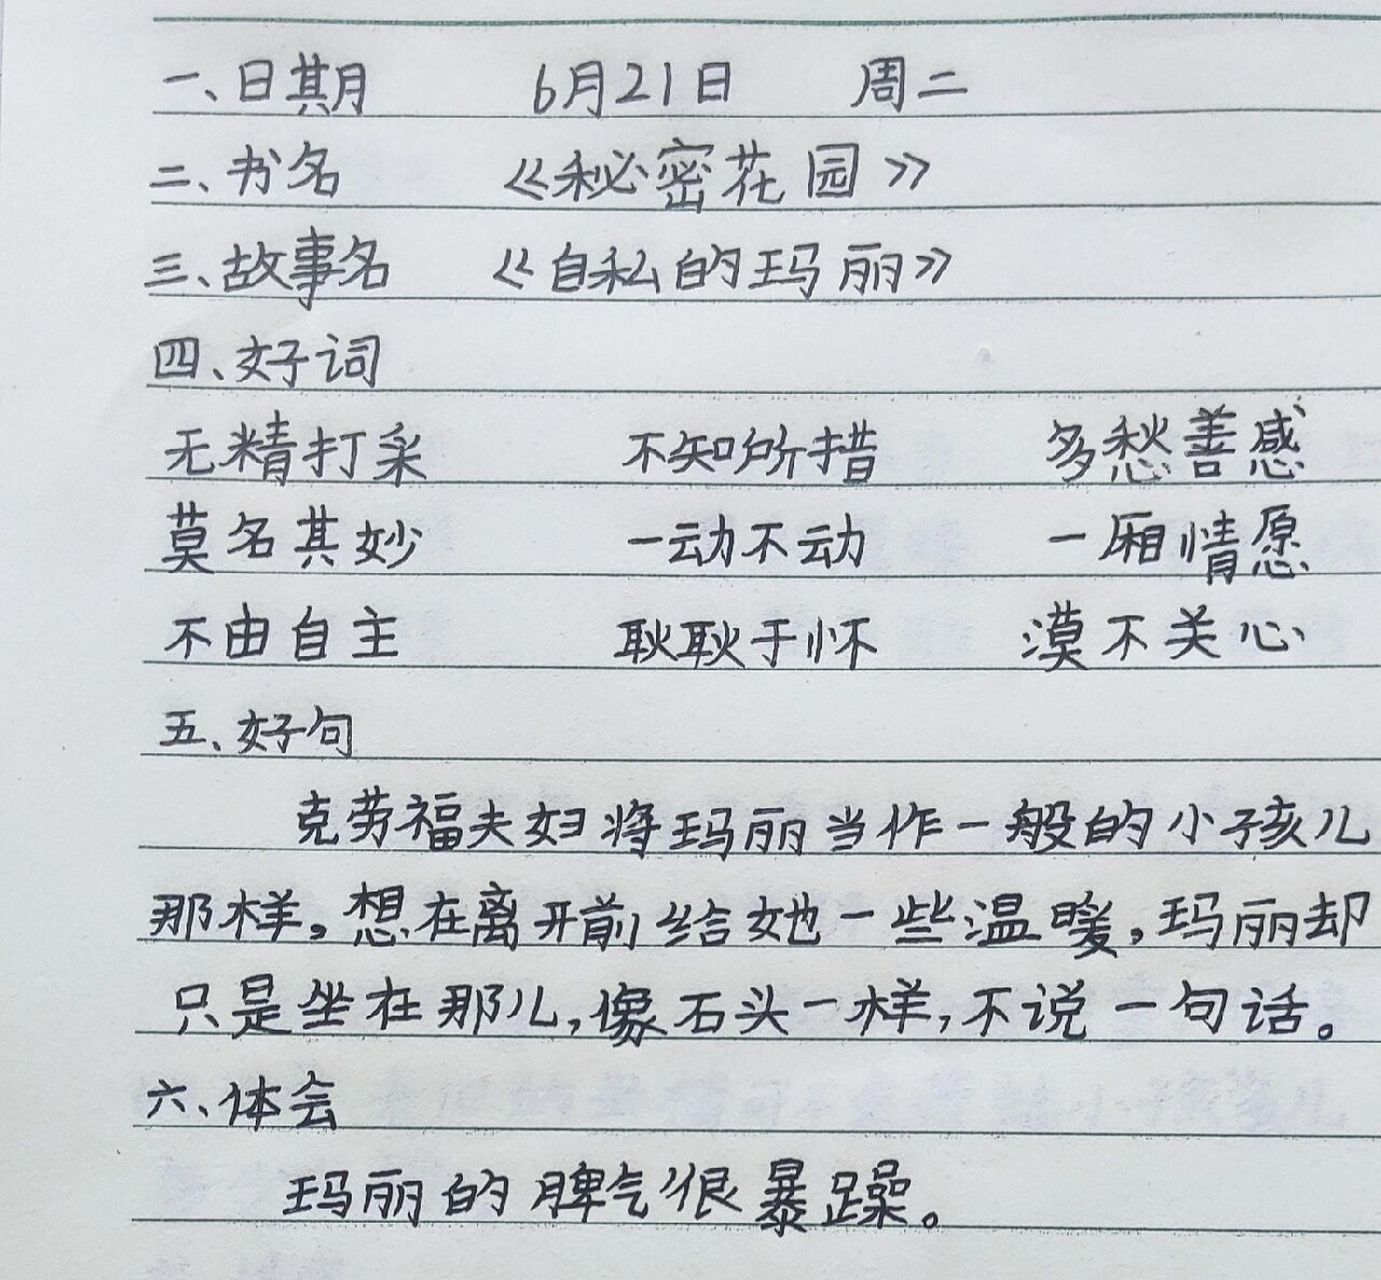 一、日期 6月21日 周二
二、书名 《秘密花园》
三、故事名 《自私的玛丽》
四、好词
无精打采 不知所措 多愁善感
莫名其妙 一动不动 一厢情愿
不由自主 耿耿于怀 漠不关心
五、好句
克劳福夫妇将玛丽当作一般的小孩儿
那样。想在离开前给她一些温暖,玛丽却
只是坐在那儿,像石头一样,不说一句话。
六、体会
玛丽的脾气很暴躁。